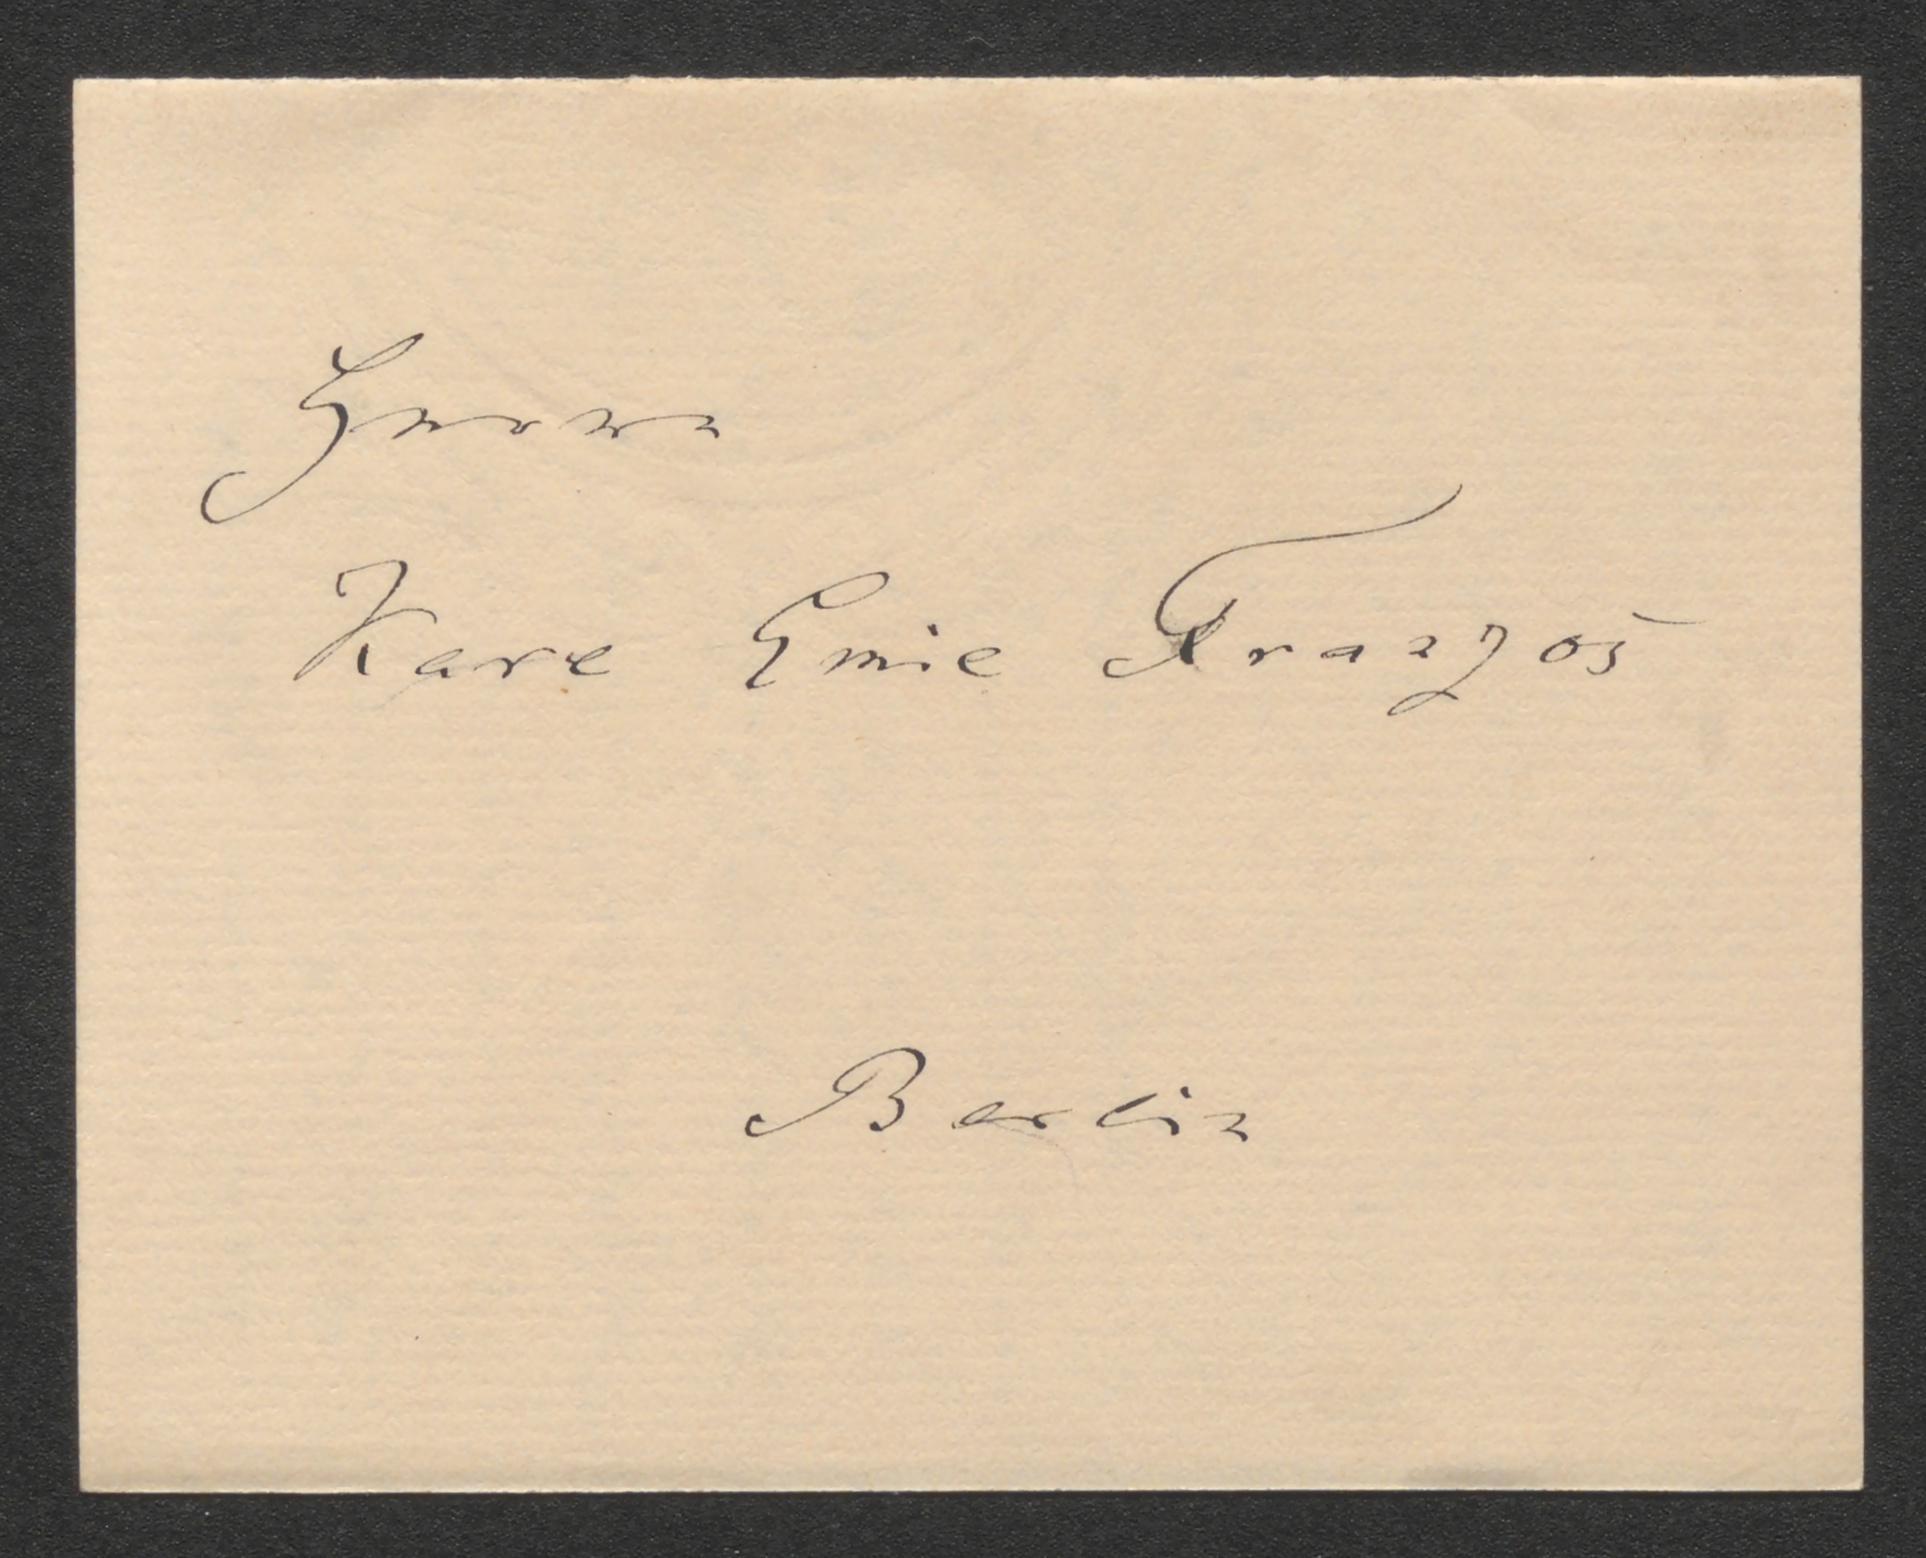 Herrn
Karl Emil Franzos
Berlin